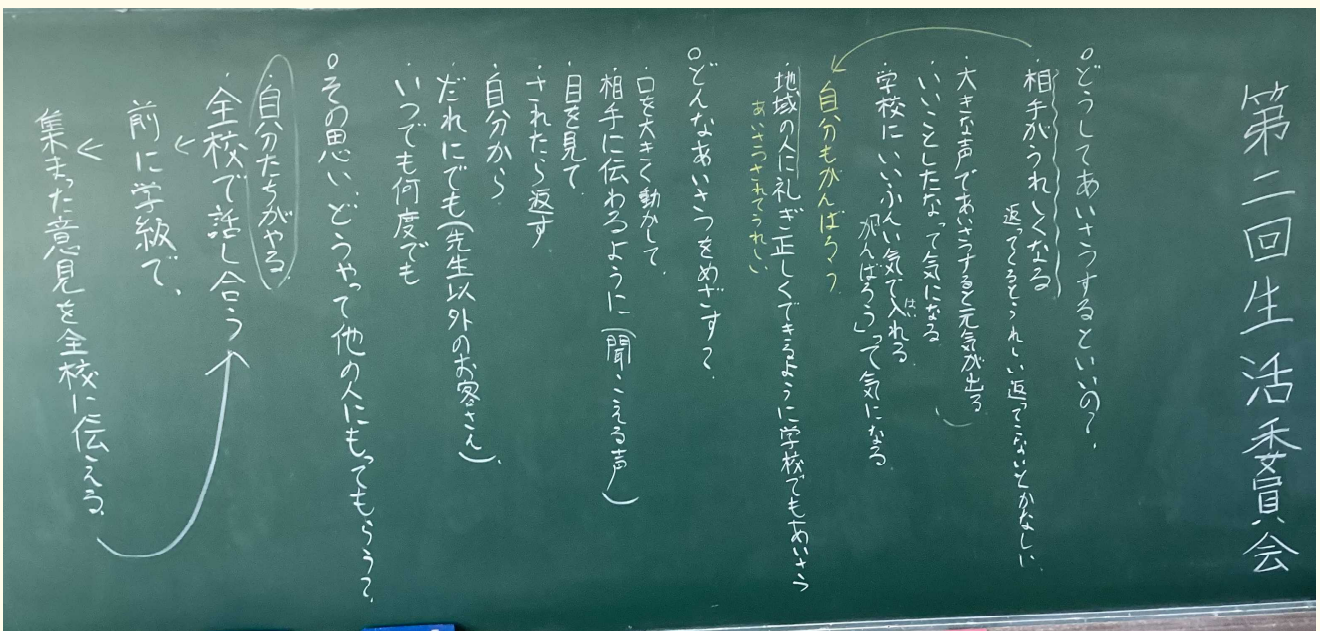 第二回生活委員会
○どうしてあいさつするといいの?
・相手がうれしくなる
返ってくるとうれしい返ってこないとかなしい
・大きな声であいさつすると元気が出る
・いいことしたなって気になる
・学校にいいふんい気で入れる
はい
「がんばろう」って気になる
自分もがんばろう
・地域の人に礼ぎ正しくできるように学校でもあいさつ
あいさつされてうれしい
○どんなあいさつをめざす?
・口を大きく動かして
・相手に伝わるように(聞こえる声)
・目を見て
・されたら返す
・自分から
・だれにでも(先生以外のお客さん)
・いつでも何度でも
○その思い、どうやって他の人にもってもらう?
・自分たちがやる
・全校で話し合う
↓
前に学級で、
↓
集まった意見を全校に伝える